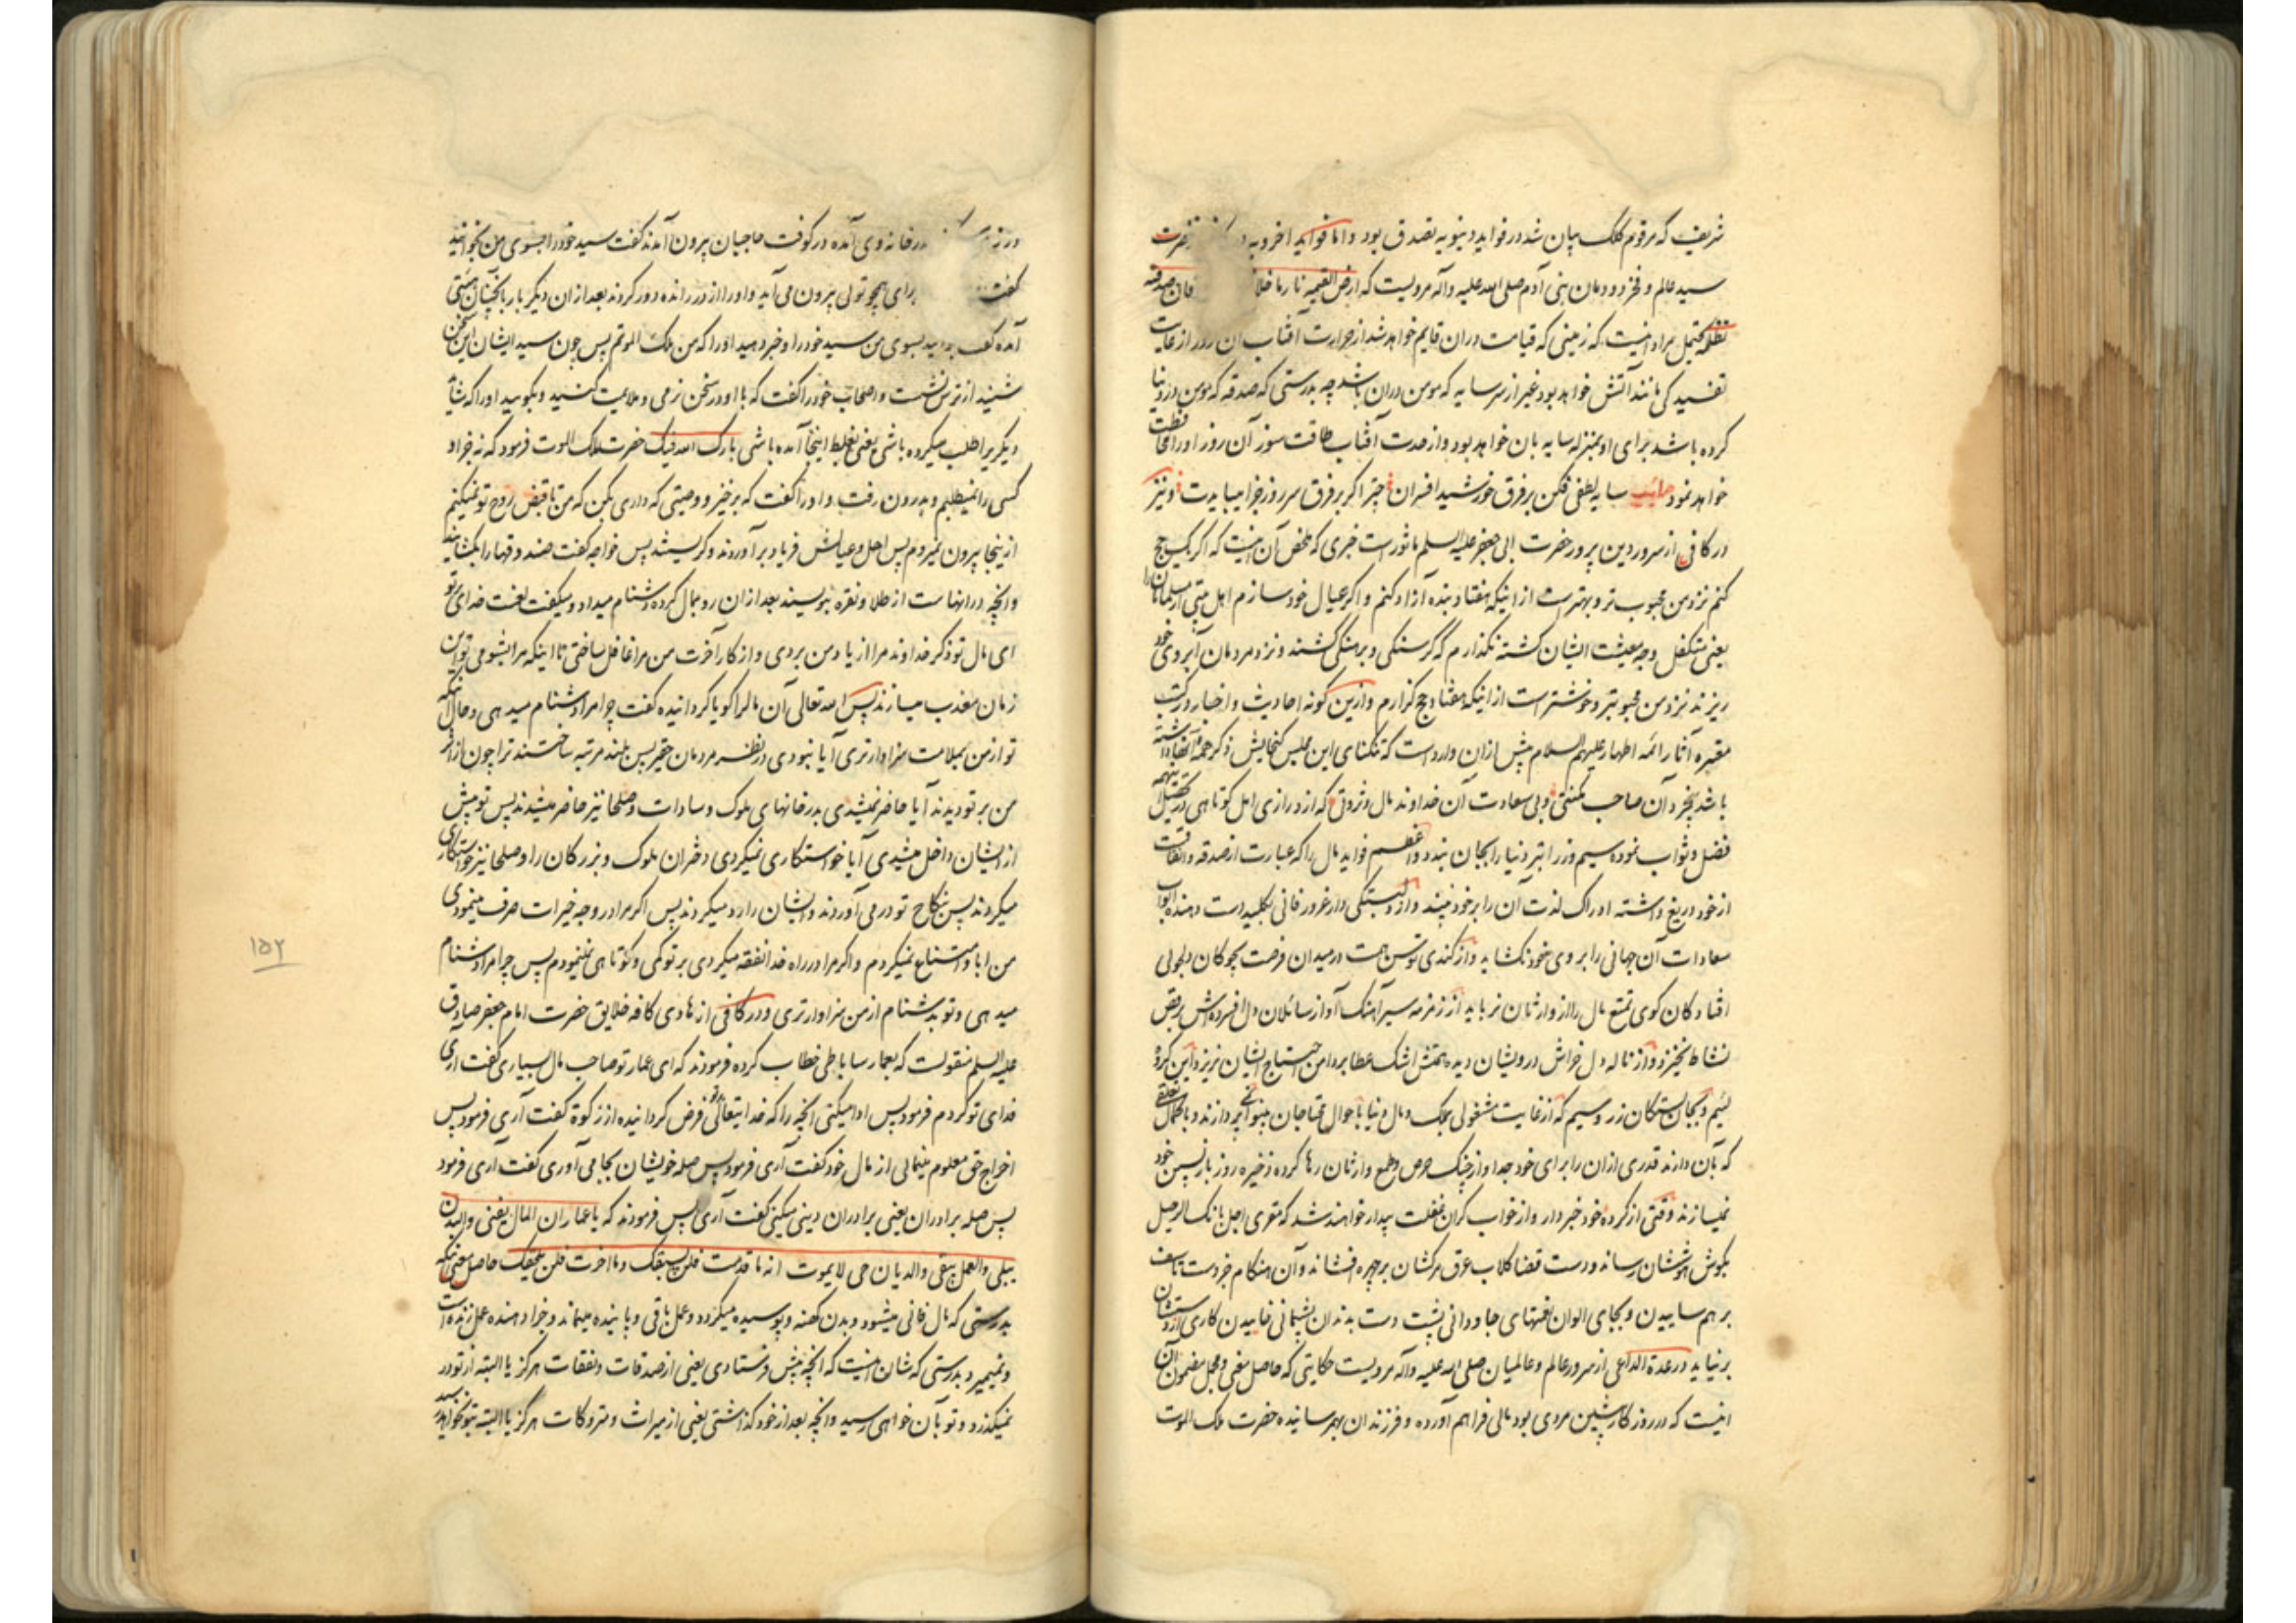 شریف که مرقوم کلک بیان شد در فواید دنیویه تصدق بود و اما فواید اخرویه حضرت
سید عالم و فخر دودمان بنی آدم صلی الله علیه وآله مرویست که ارض القیمه نار ما خلا فان صدقته
تظله محتمل مراد اینست که زمینی که قیامت دران قایم خواهد شد از حرارت آفتاب ان روز از غایت
تفسیدکی مانند آتش خواهد بود غیر از سر سایه که مومن دران باشد چه بدرستی که صدقه که مومن در دنیا
کرده باشد برای او بمنزله سایه بان خواهد بود و از حدت آفتاب طاقت سوز آن روز او را محافظت
خواهد نمود سایه لطفی فکن بر فرق خورشید افسران چتر اکر بر فرق سر روز جزا میبایدت و نیز
در کافی از سرور دین پرور حضرت ابی جعفر علیه السلم ماثورست خبری که ملخص آن اینست که اکر یک حج
کنم نزد من محبوب تر و بهترست از اینکه هفتاد بنده آزاد کنم و اکر عیال خود سازم اهل بیتی از مسلمانان را
یعنی متکفل وجه معیشت ایشان کشته نکذارم که کرسنکی و برهنکی کشند و نزد مردمان آبروی خود
ریزند نزد من محبوبتر و خوشترست از اینکه هفتاد حج کزارم و ازین کونه احادیث و اخبار در کتب
معتبره آثار ائمه اطهار علیهم السلام بیش ازان واردست که تنکنای این مجلس کنجایش ذکر همه آنها داشته
باشد بخرد آن صاحب مکنتی و بی سعادت آن خداوند مال و ثروتی که از درازی امل کوتاهی در تحصیل اینهمه
فضل و ثواب نموده سیم و زر ابتر دنیا را بجان بندد و اعظم فواید مال را که عبارت از صدقه و انفاقست
از خود دریغ داشته ادراک لذت آن را بر خود نپسندد و از دلبستکی دار غرور فانی بکلید دست دهنده ابواب
سعادات آن جهانی را بر روی خود نکشاید و از کندی توسن همت در میدان فرصت بچوکان دلجوئی
افتادکان کوی تمتع مال را از وارثان نرباید از زمزمه سیر آهنک آواز سائلان دل افسرده اش برقص
نشاط نخیزد و از ناله دل خراش درویشان دیده همتش اشک عطا بر دامن احتیاج ایشان نریزد این کروه
لئیم و بجان بستکان زر و سیم که از غایت مشغولی بملک و مال دنیا باحوال محتاجان بینوا نپردازند و با کمال تعلقی
که بآن دارند قدری ازان را برای خود جدا و از چنک حرص و طمع وارثان رها کرده ذخیره روز بازپسین خود
نمیسازند وقتی از کرده خود خبردار و از خواب کران غفلت بیدار خواهند شد که مقری اجل بانک الرحیل
بکوش هوششان رساند و دست قضا کلاب عرق مرکشان بر چهره افشاند و آن هنکام جز دست تاسف
بر هم ساییدن و بجای الوان نعمتهای جاودانی پشت دست بدندان پشیمانی خاییدن کاری از دستشان
بر نیاید در عدة الداعی از سرور عالم و عالمیان صلی الله علیه وآله مرویست حکایتی که حاصل معنی و مجمل مضمون آن
اینست که در روزکار پیشین مردی بود مالی فراهم آورده و فرزندان بهم رسانیده حضرت ملک الموت
در خانه وی آمده در کوفت حاجبان بیرون آمدند کفت سید خود را بسوی من بخوانید
کفتند برای همچو توئی بیرون می آید و او را از در رانده دور کردند بعد ازان دیکر بار با آنچنان هیئتی
آمده کفت بسوی من سید خود را و خبر دهید او را که من ملک الموتم پس چون سید ایشان این سخن
شنید از ترس نشست و اصحاب خود را کفت که با او در سخن نرمی و ملایمت کنید و بکویید او را که شاید
دیکریرا طلب میکرده باشی یعنی بغلط اینجا آمده باشی بارک الله فیک حضرت ملک الموت فرمود که نه بجز او
کسی را نمیطلبم و بدرون رفت و او را کفت که برخیز و وصیتی که داری بکن که من تا قبض روح تو نمیکنم
از ینجا بیرون نمیروم پس اهل و عیالش فریاد بر آوردند و کریستند پس خواجه کفت صندوقها را بکشایند
و آنچه در انهاست از طلا و نقره بنویسند بعد ازان رو بمال کرده دشنام میداد و میکفت لعنت خدای بر تو
ای مال تو ذکر خداوند مرا از یاد من بردی و از کار آخرت من مرا غافل ساختی تا اینکه مرا بشومی تو این
زمان معذب میسازند پس الله تعالی آن مال را کویا کردانیده کفت چرا مرا دشنام میدهی و حال آنکه
تو از من بملامت سزاوارتری آیا نبودی در نظر مردمان حقیر پس بلند مرتبه ساختند ترا چون از اثر
من بر تو دیدند آیا حاضر نمیشدی بدر خانهای ملوک و سادات و صلحا نیز حاضر میشدند پس تو پیش
از ایشان داخل میشدی آیا خواستکاری نمیکردی دختران ملوک و بزرکان را و صلحا نیز خواستکاری
میکردند پس بنکاح تو در می آوردند و ایشان را رد میکردند پس اکر مرا در وجه خیرات صرف مینمودی
من ابا و امتناع نمیکردم و اکر مرا در راه خدا نفقه میکردی بر تو کمی و کوتاهی نمینمودم پس چرا مرا دشنام
میدهی و تو بدشنام از من سزاوارتری و در کافی از هادی کافه خلایق حضرت امام جعفر صادق
علیه السلم منقولست که بعمار ساباطی خطاب کرده فرمودند که ای عمار تو صاحب مال بسیاری کفت آری
فدای تو کردم فرمود پس ادا میکنی آنچه را که خدایتعالی بر تو فرض کردانیده از زکوة کفت آری فرمود پس
اخراج حق معلوم مینمائی از مال خود کفت آری فرمود پس صله خویشان بجا می آوری کفت آری فرمود
پس صله برادران یعنی برادران دینی میکنی کفت آری پس فرمودند که یا عمار ان المال یفنی والبدن
یبلی والعمل یبقی والدیان حی لایموت انه ما قدمت فلن یسبقک وما اخرت فلن یلحقک حاصل معنی آنکه
بدرستی که مال فانی میشود و بدن کهنه و پوسیده میکردد و عمل باقی و پاینده میماند و جزا دهنده عمل زنده است
و نمیمیرد بدرستی که شان اینست که آنچه پیش فرستادی یعنی از صدقات و نفقات هرکز یا البته از تو در
نمیکذرد و تو بآن خواهی رسید و آنچه بعد از خود کذاشتی یعنی از میراث و متروکات هرکز یا البته بتو نخواهد رسید
۱۵۲